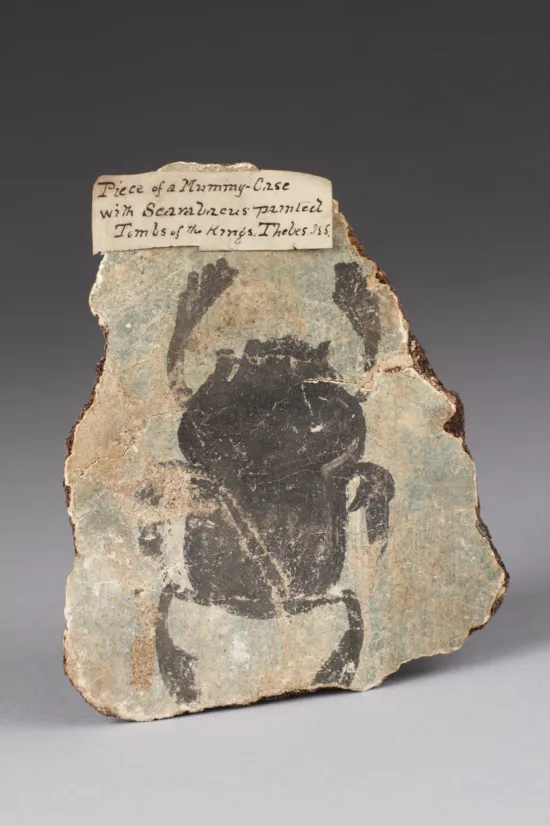 Piece of a Mummy-Case
with Scarabaeus painted
Tombs of the Kings. Thebes.